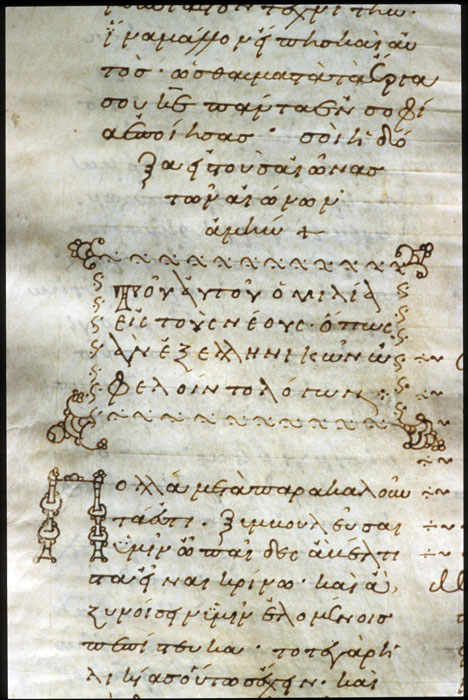 τός · ὡς θαυμαστὰ τὰ ἔργα
σου κε πάντα ἐν σοφί
α ἐποίησας · σοὶ ἡ δό
ξα εἰς τοὺς αἰῶνας
τῶν αἰώνων
ἀμήν +
Τοῦ αὐτοῦ ὁμιλία
εἰς τοὺς νέους · ὅπως
ἂν ἐξ ἑλληνικῶν ὠ
φελοῖντο λόγων :
Πολλά με τὰ παρακαλοῦν
τά ἐστι · ξυμβουλεῦσαι
ὑμῖν ὦ παῖδες ἃ βέλτι
στα εἶναι κρίνω · καὶ ἃ
ξυνοίσειν ὑμῖν ἑλομένοις
πεπίστευκα · τό τε γὰρ ἡ
λικίας οὕτως ἔχειν · καὶ